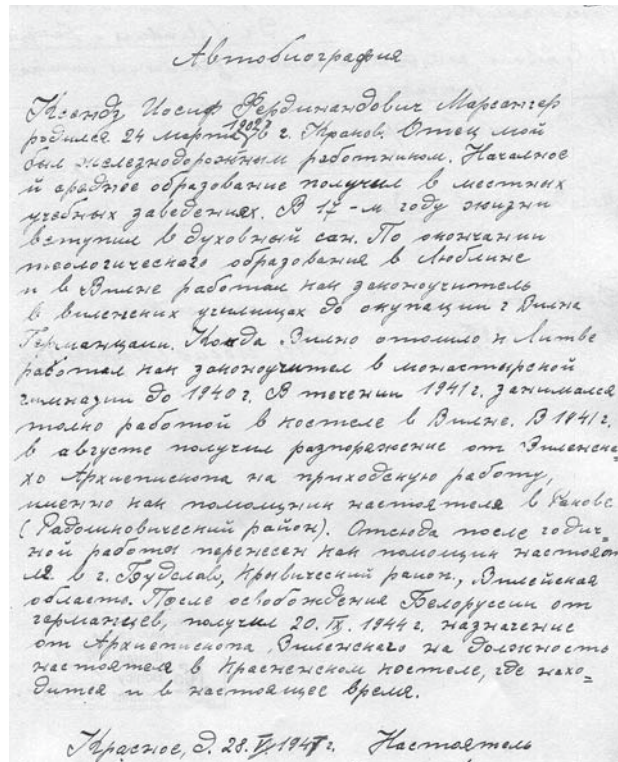 Автобиография
Ксендз Иосиф Фердинандович Марсангер
родился 24 марта 1902 г. в г. Краков. Отец мой
был железнодорожным работником. Началное
и среднее образование получил в местных
учебных заведениях. В 17-м году жизни
вступил в духовный сан. По окончании
теологического образования в Люблине
и в Вилне работал как законоучитель
в виленских училищах до окупации г Вилна
Германцами. Когда Вилно отошло к Литве
работал как законоучител в монастырской
гимназии до 1940 г. В течении 1941 г. занимался
толко работой в костеле в Вилне. В 1941 г.
в августе получил разпоряжение от Виленска-
хо Архиепископа на приходскую работу,
именно как помощник настоятеля в Ракове
(Радошковический район). Отсюда после годич=
ной работы перенесен как помощник настояте
ля в г. Будслав, Крывический раион, Вилейская
область. После освобождения Белоруссии от
германцев, получил 20.IX.1944 г. назначение
от Архиепископа Виленского на должность
настоятеля в Красненском костеле, где нахо=
дится и в настоящее время.
Красное, д. 28.V.1947 г. Настоятель